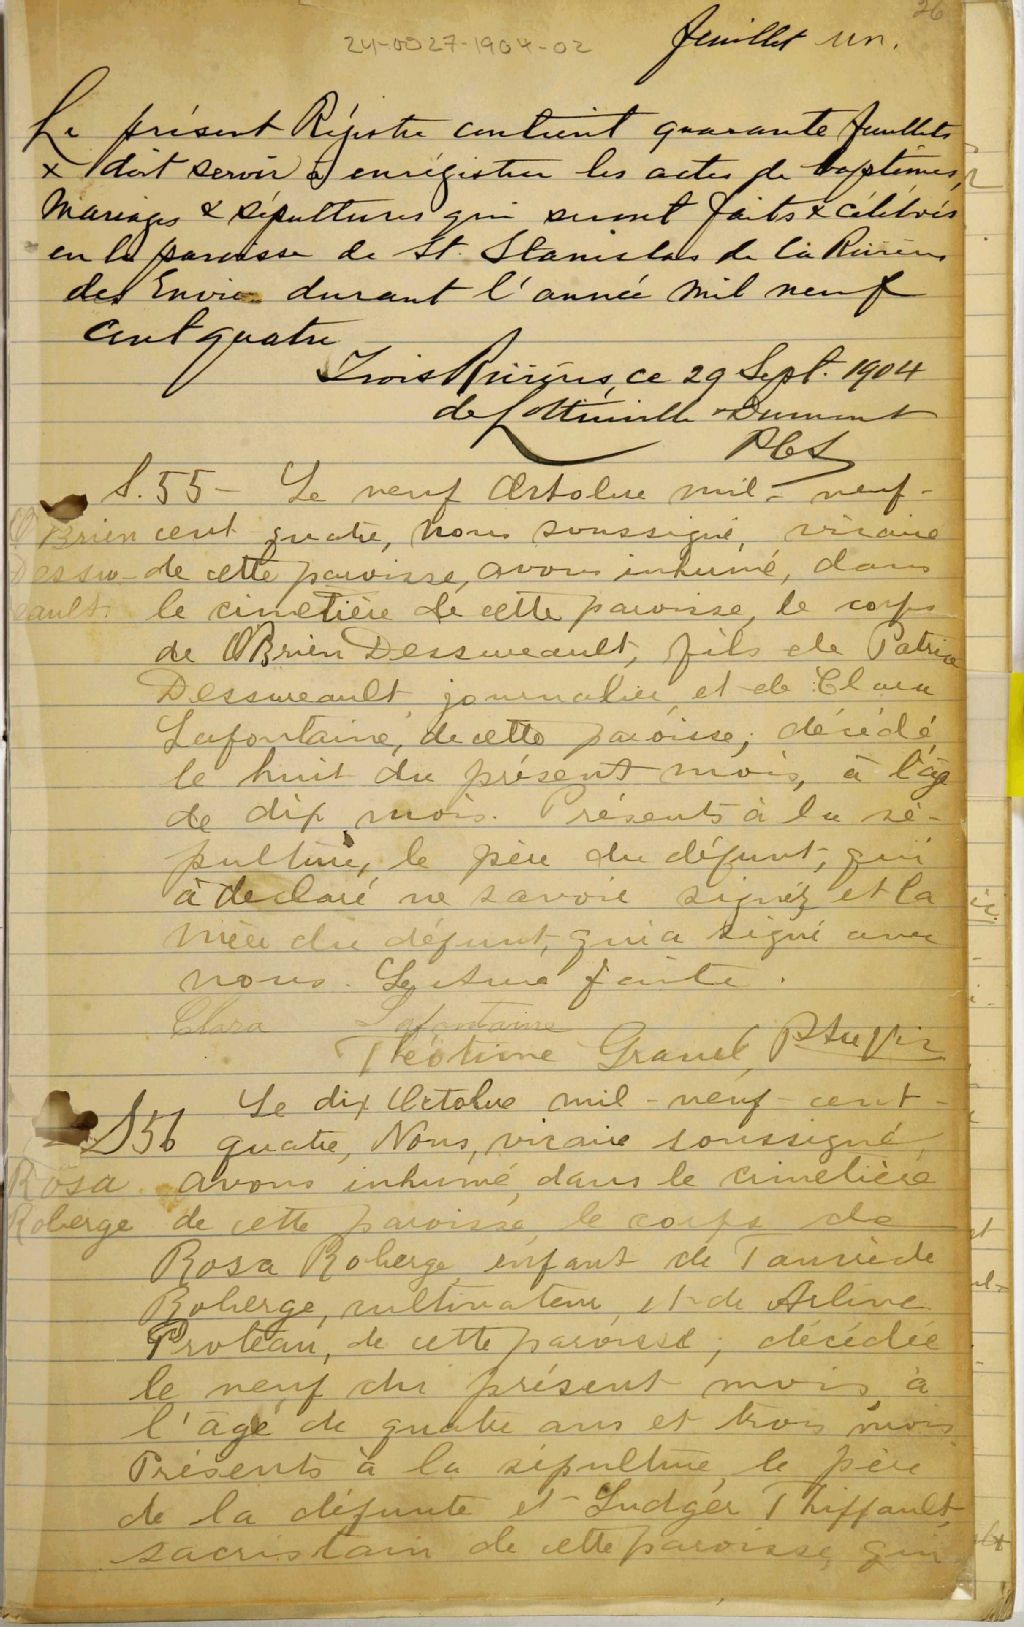 26
24-0027-1904-02
feuillet un.
Le présent Régistre contient quarante feuillets
& doit servir à enrégistrer les actes de baptêmes,
Mariages & sépultures qui seront faits & célébrés
en la paroisse de St. Stanislas de la Rivière
des Envies durant l'année mil neuf
cent quatre
Trois Rivières, ce 29 Sept. 1904
de Lottinville & Dumont
PCS
S. 55 - Le neuf Octobre mil-neuf-
O'Brien cent quatre, nous soussigné, vicaire
Dessu- de cette paroisse, avons inhumé, dans
eault. le cimetière de cette paroisse, le corps
de O'Brien Dessureault, fils de Patrice
Dessureault, journalier, et de Clara
Lafontaine, de cette paroisse; décédé
le huit du présent mois, à l'âge
de dix mois. Présents à la sé-
pulture, le père du défunt, qui
a déclaré ne savoir signer et la
mère du défunt, qui a signé avec
nous. Lecture faite.
Clara Lafontaine
Théotime Gravel, Ptre Vic
S 56 Le dix Octobre mil-neuf-cent-
quatre, Nous, vicaire soussigné
Rosa avons inhumé, dans le cimetière
Roberge de cette paroisse, le corps de
Rosa Roberge, enfant de Tancrède
Roberge, cultivateur, et de Arline
Proteau, de cette paroisse; décédée
le neuf du présent mois, à
l'âge de quatre ans et trois mois
Présents à la sépulture, le père
de la défunte et Ludger Thiffault,
sacristain de cette paroisse, qui